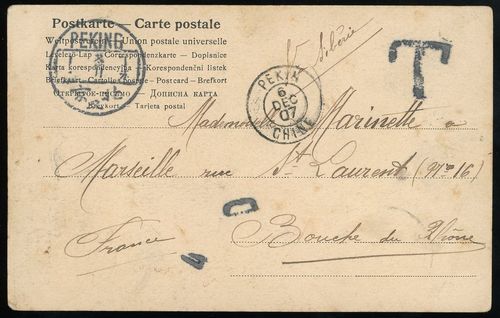 Postkarte - Carte postale
Weltpostverein - Union postale universelle
Levelező-Lap - Correspondenzkarte - Dopisnice
Karta korespondencyjna - Korespondenční lístek
Briefkaart - Cartolina postale - Postcard - Brefkort
ОТКРЫТОЕ ПИСЬМО - ДОПИСНА КАРТА
Brevkort - Tarjeta postal
PEKING
PEKIN
6
DEC
07
CHINE
T
Sibérie
Mademoiselle Marinette a
Marseille rue St Laurent (No 16)
France
Bouche du Rhône